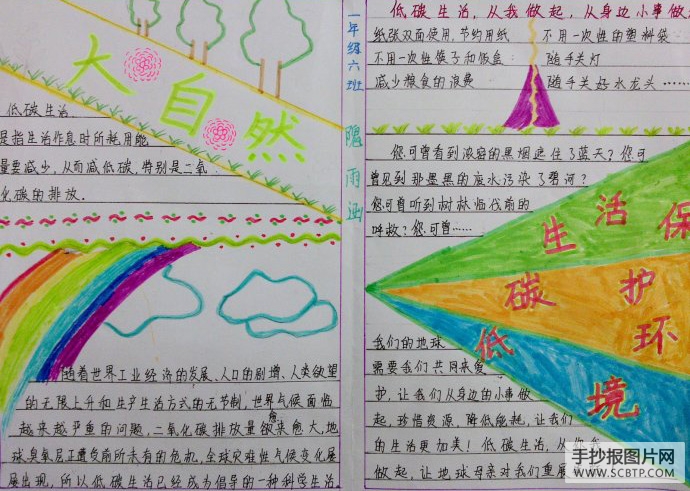 大自然
低碳生活
是指生活作息时所耗用能
量要减少,从而减低碳,特别是二氧
化碳的排放.
随着世界工业经济的发展、人口的剧增、人类欲望
的无限上升和生产生活方式的无节制,世界气候面临
越来越严重的问题,二氧化碳排放量欲来愈大,地
愈
球臭氧层正遭受前所未有的危机,全球灾难性气候变化屡
屡出现,所以低碳生活已经成为倡导的一种科学生活
一年级六班
雨涵
低碳生活,从我做起,从身边小事做
纸张双面使用,节约用纸
不用一次性筷子和饭盒
减少粮食的浪费
不用一次性的塑料袋
随手关灯
随手关好水龙头……
您可曾看到浓密的黑烟遮住了蓝天?您可
曾见到那墨黑的废水污染了碧河?
您可曾听到树林临伐前的
呼救?您可曾……
低碳生活
保护环境
我们的地球
需要我们共同来爱
护,让我们从身边的小事做
起,珍惜资源,降低能耗,让我们
的生活更加美!低碳生活,从你我
做起,让地球母亲对我们重展
手抄报图片网
WWW.SCBTP.COM